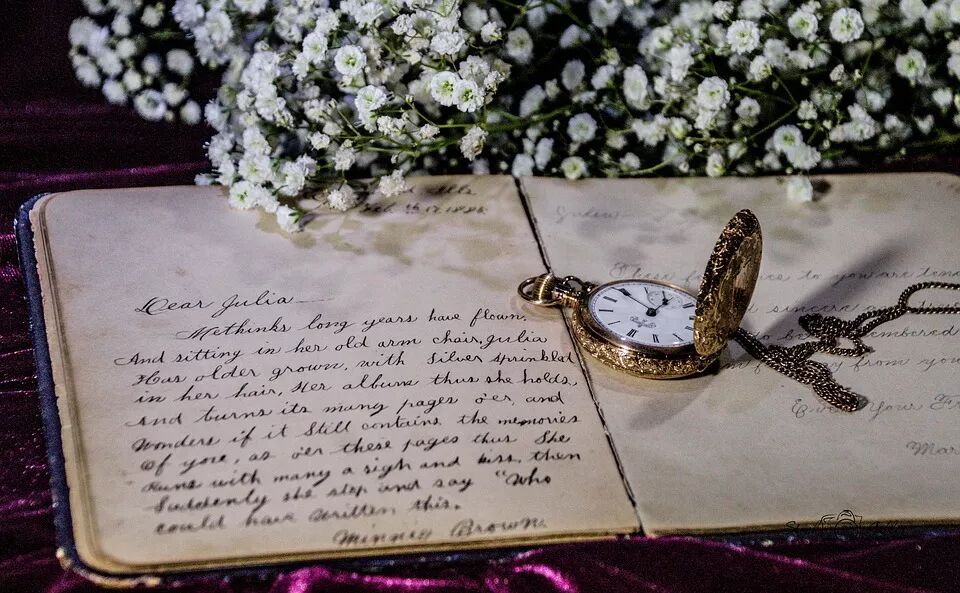 Dear Julia
Methinks long years have flown,
And sitting in her old arm chair, Julia
Has older grown, with Silver sprinkled
in her hair, Her album thus she holds,
And turns its many pages o'er, and
Wonders if it Still contains the memories
Of yore, as o'er these pages thus She
Runs with many a sigh and kiss, then
Suddenly she stop and say "Who
could have written this.
Minnie Brown
Julia
These to you are
sincere
remembered
from you
Ever Your